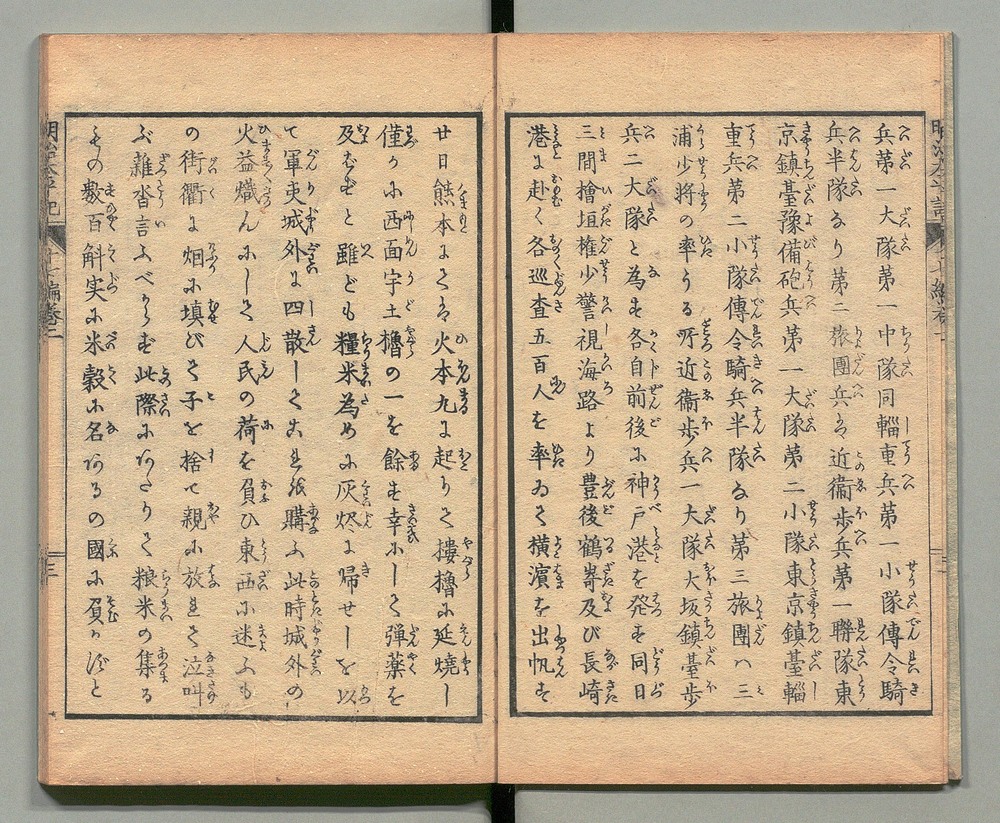 兵第一大隊第一中隊同輜重兵第一小隊傳令騎
兵半隊なり第二旅團兵は近衞歩兵第一聯隊東
京鎮臺豫備砲兵第一大隊第二小隊東京鎮臺輜
重兵第二小隊傳令騎兵半隊なり第三旅團ハ三
浦少將の率うる所近衞歩兵一大隊大坂鎮臺歩
兵二大隊と為す各自前後に神戸港を発す同日
三間檜垣権少警視海路より豊後鶴崎及び長崎
港に赴く各巡査五百人を率ゐて横濱を出帆す
廿日熊本にては火本丸に起りて搂櫓に延燒し
僅かに西面宇土櫓の一を餘す幸にして弾薬を
及ぼずと雖ども糧米為めに灰燼に帰せしを以
て軍吏城外に四散してこれを購ふ此時城外の
火益熾んにして人民の荷を負ひ東西に迷ふも
の街衢に烟に填びて子を捨て親に放れて泣叫
ぶ雜沓言ふべからず此際にあたりて粮米の集る
もの数百斛実に米穀に名あるの國に負かずと